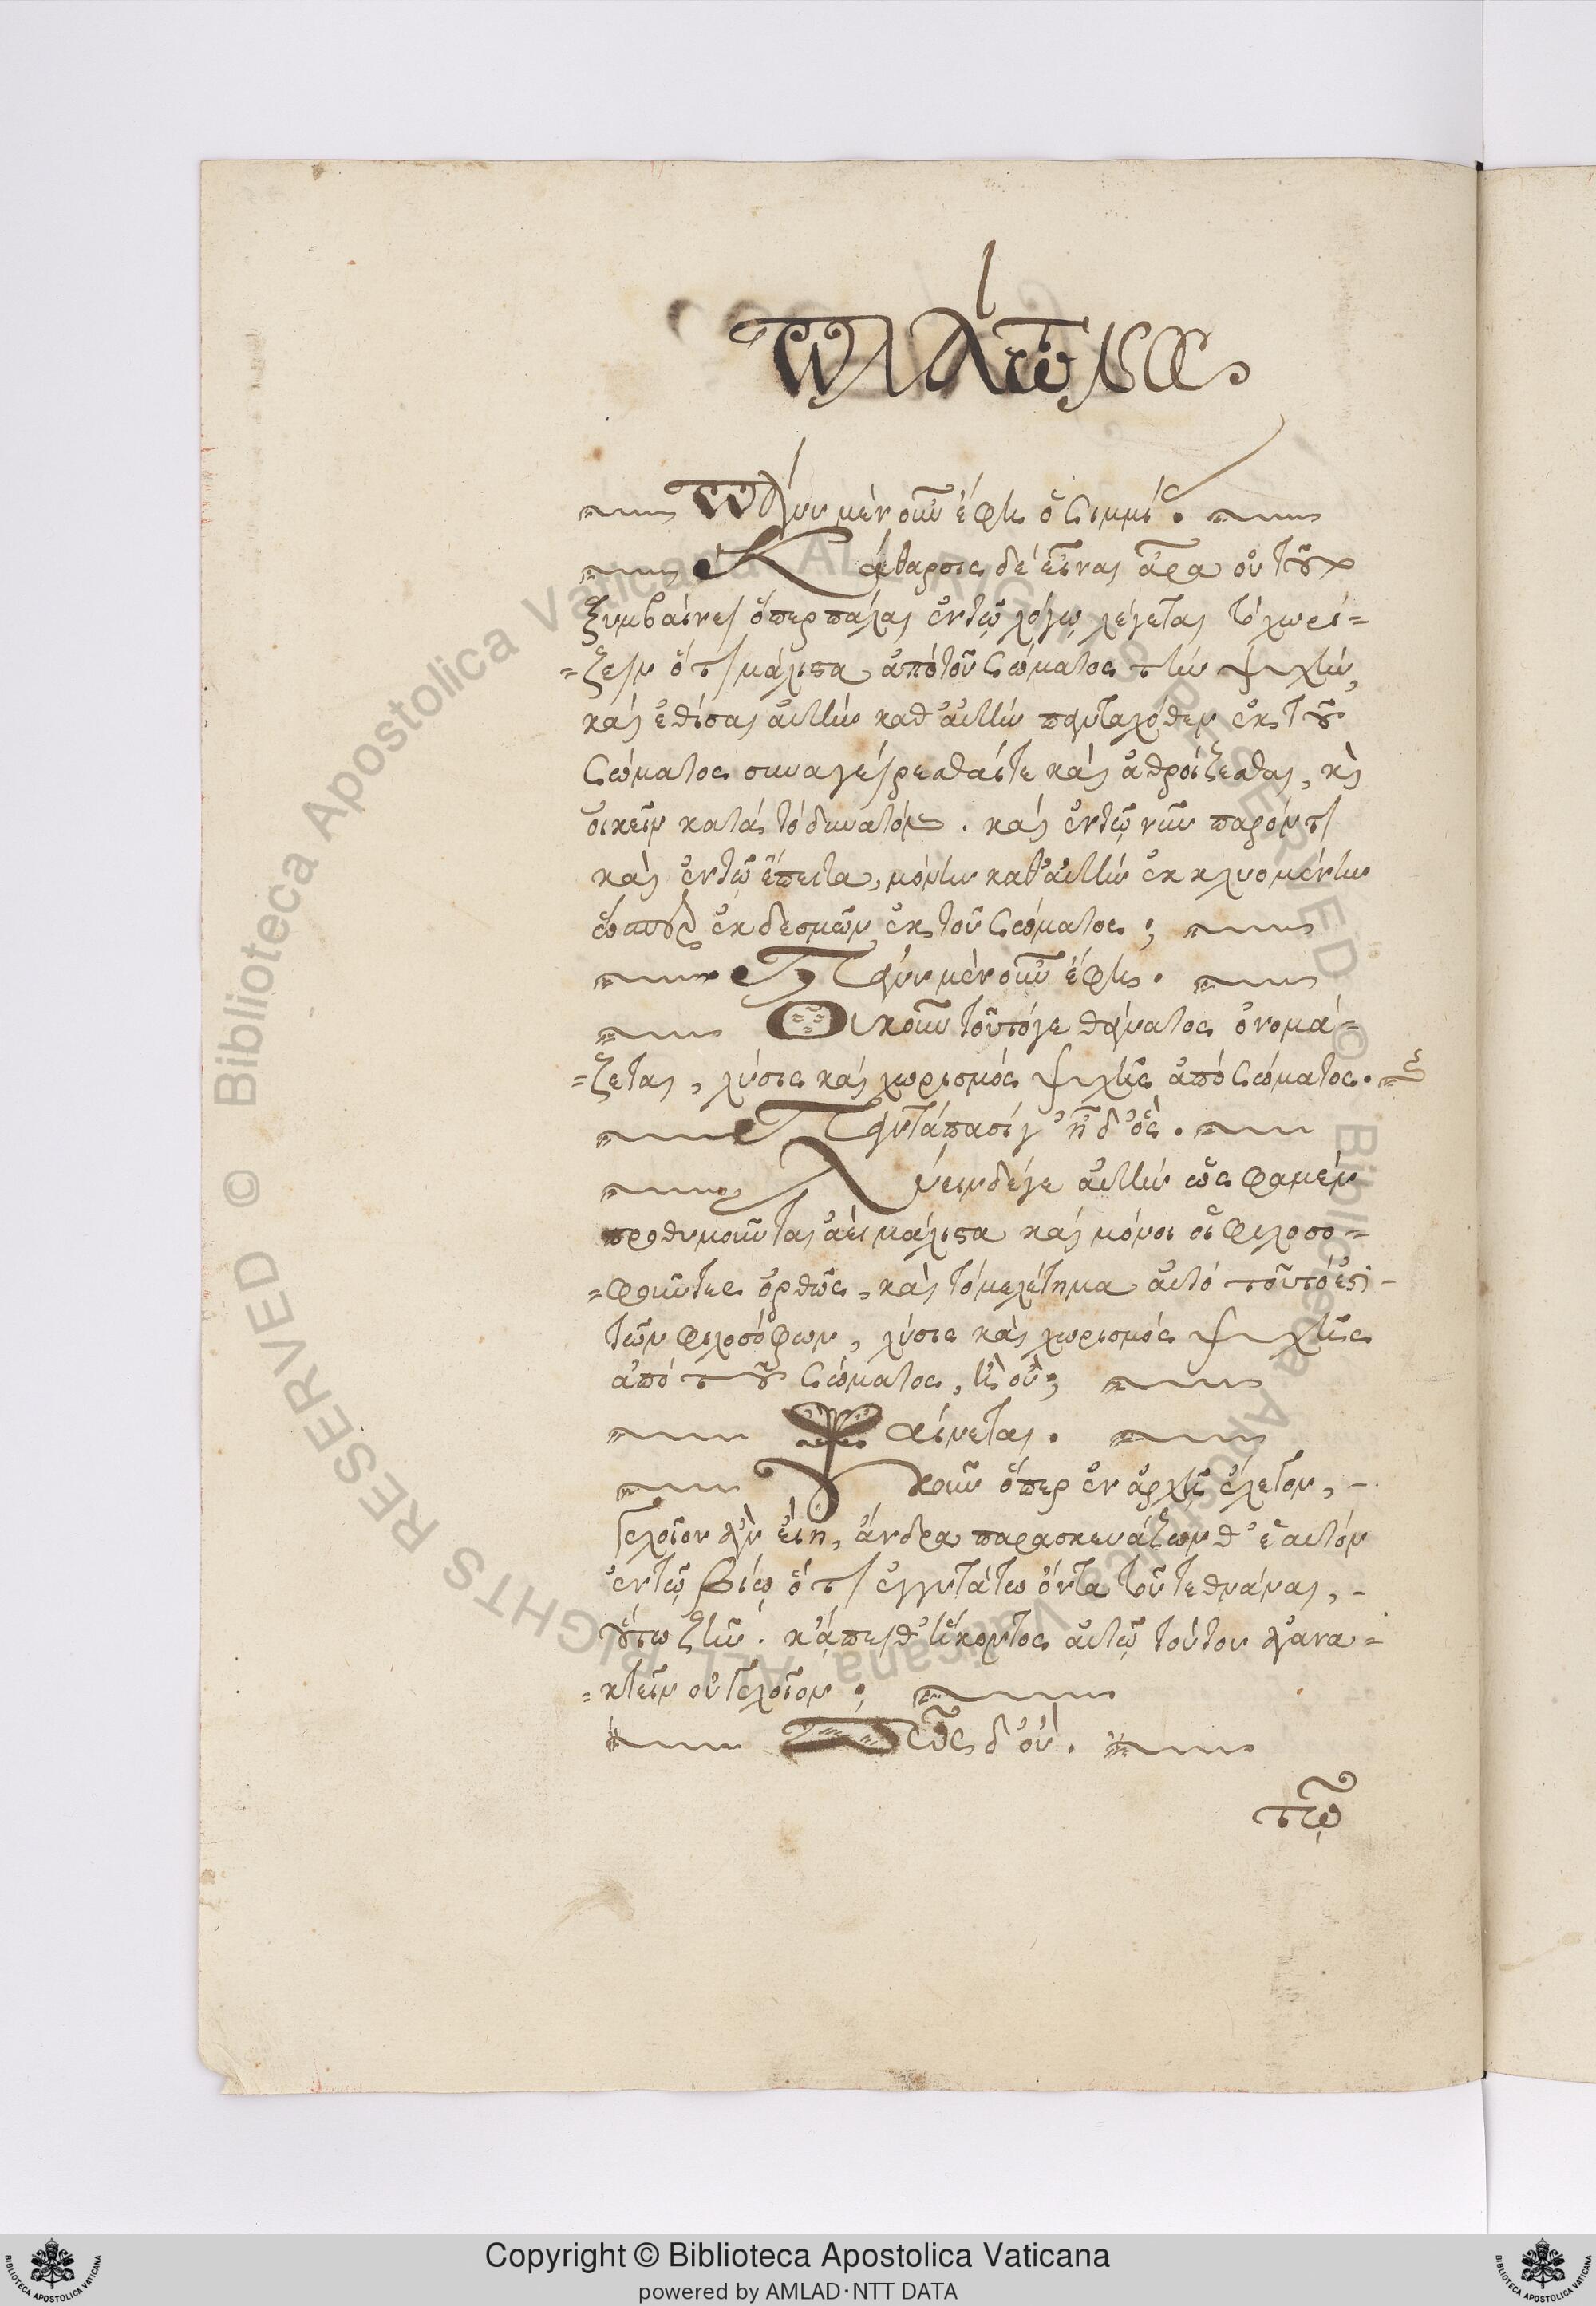 Πλάτωνος
Πάνυ μὲν οὖν ἔφη ὁ Σιμμί·
Κάθαρσις δὲ εἶναι ἆρα οὐ τοῦτο
ξυμβαίνει ὅπερ πάλαι ἐν τῷ λόγῳ λέγεται τὸ χωρί=
=ζειν ὅτι μάλιστα ἀπὸ τοῦ σώματος τὴν ψυχὴν,
καὶ ἐθίσαι αὐτὴν καθ' αὐτὴν πανταχόθεν ἐκ τοῦ
σώματος συναγείρεσθαί τε καὶ ἀθροίζεσθαι, κὶ
οἰκεῖν κατὰ τὸ δυνατὸν. καὶ ἐν τῷ νῦν παρόντι
καὶ ἐν τῷ ἔπειτα, μόνην καθ' αὐτὴν ἐκκλυομένην
ἐκ δεσμῶν ἐκ τοῦ σώματος;
Πάνυ μὲν οὖν ἔφη.
Οὐκοῦν τοῦτό γε θάνατος ὀνομά=
=ζεται, λύσις καὶ χωρισμὸς ψυχῆς ἀπὸ σώματος.
Πανταπασί γ' ἦ δ' ὅς.
Λύειν δέ γε αὐτὴν ὥς φαμεν
προθυμοῦνται ἀεὶ μάλιστα καὶ μόνοι οἱ φιλοσο=
=φοῦντες ὀρθῶς, καὶ τὸ μελέτημα αὐτὸ τοῦτό ἐστι
τῶν φιλοσόφων, λύσις καὶ χωρισμὸς ψυχῆς
ἀπὸ τοῦ σώματος, ἢ οὔ;
Φαίνεται.
Οὐκοῦν ὅπερ ἐν ἀρχῇ ἔλεγον,
γελοῖον ἂν εἴη, ἄνδρα παρασκευάζονθ' ἑαυτὸν
ἐν τῷ βίῳ ὅτι ἐγγυτάτω ὄντα τοῦ τεθνάναι,
οὕτω ζῆν. κἄπειθ' ἥκοντος αὐτῷ τούτου ἀγανα=
=κτεῖν οὐ γελοῖον;
Πῶς δ' οὔ.
τῷ
Copyright © Biblioteca Apostolica Vaticana
powered by AMLAD·NTT DATA